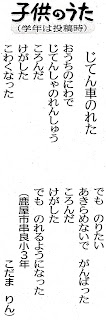 子供のうた
（学年は投稿時）
じてん車のれた
おうちのにわで
じてんしゃのれんしゅう
ころんだ
けがした
こわくなった
でも のりたい
あきらめないで がんばった
ころんだ
けがした
でも のれるようになった
（鹿屋市串良小３年
こだま りん）